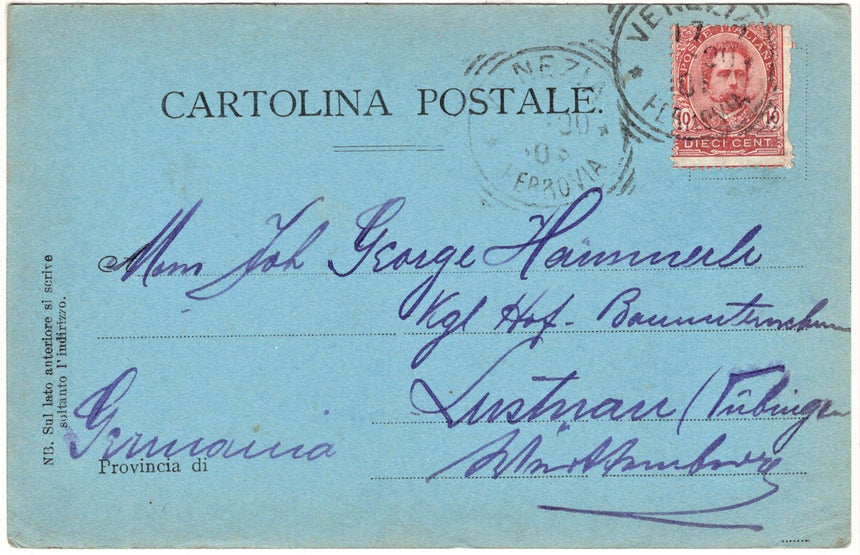 CARTOLINA POSTALE.
VENEZIA
17
FERROVIA
POSTE ITALIANE
10 10
DIECI CENT.
NEZIA
FERROVIA
Joh George Hämmerle
Kgl Hof-
Lustnau (Tübingen
Württemberg
Germania
Provincia di
NB. Sul lato anteriore si scrive
soltanto l'indirizzo.